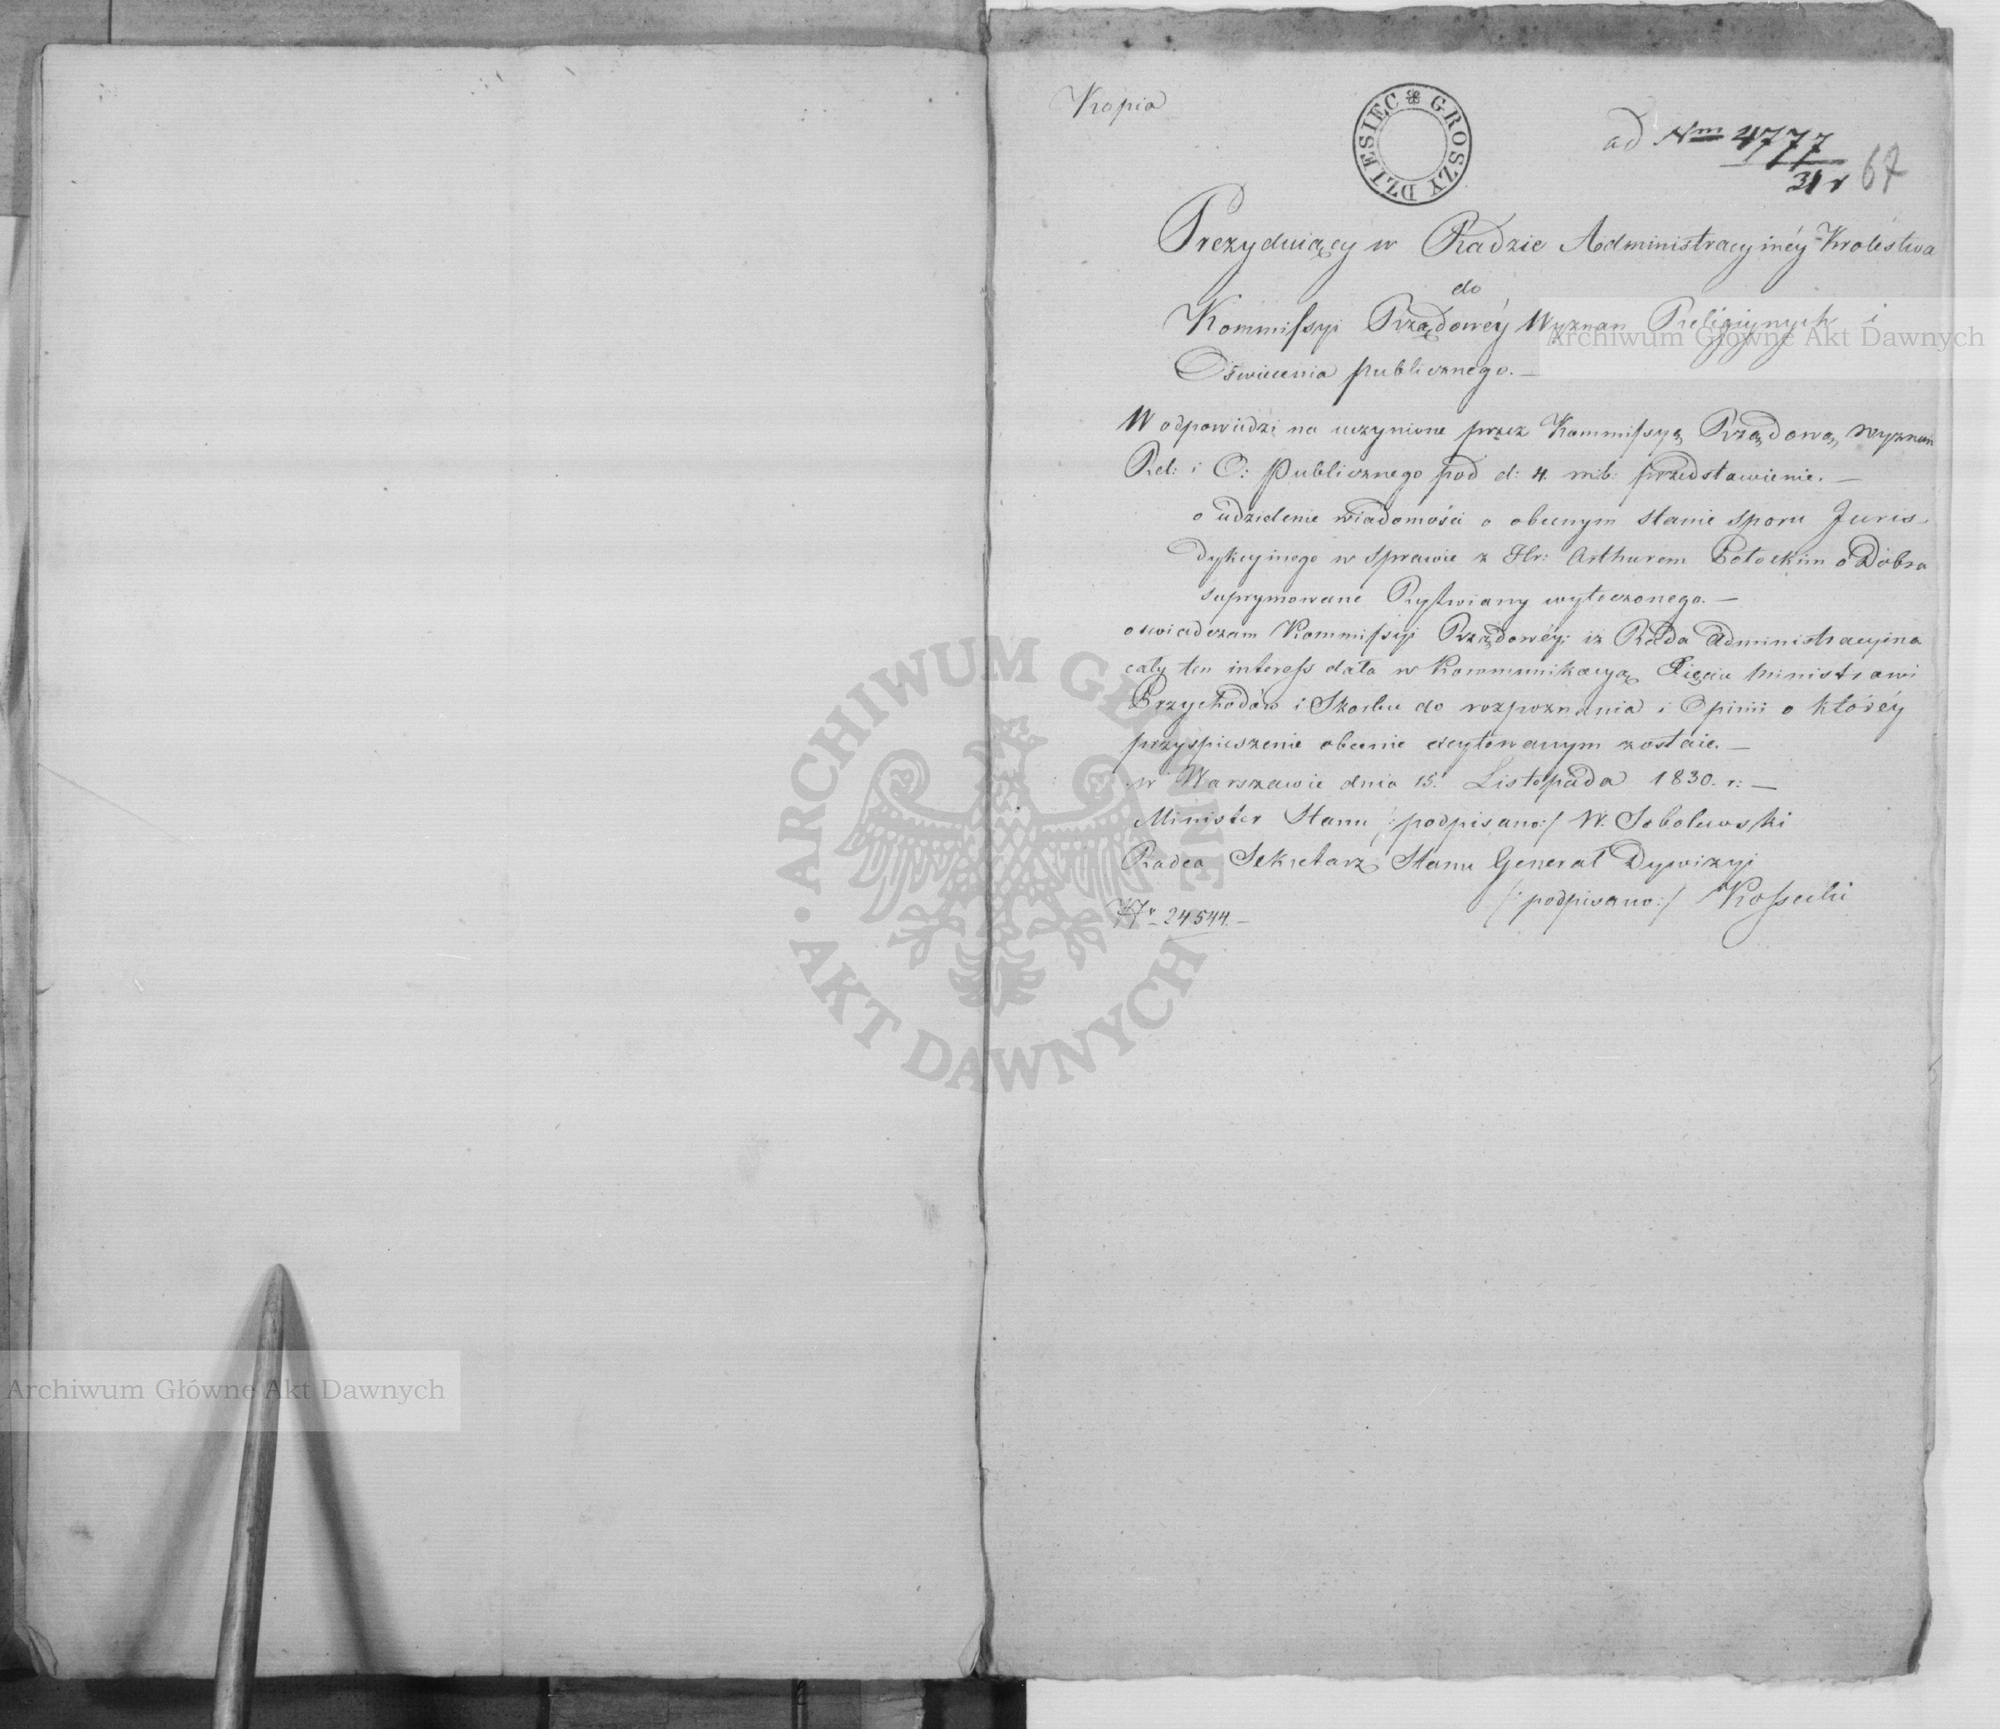 Kopia
GROSZY DZIESIEC
ad Nrm 4777
31 r
67
Prezyduiący w Radzie Administracyinéy Krolestwa
do
Kommissyi Rządowéy Wyznan Religiynych i
Oświecenia publicznego. —
W odpowiedzi na uczynione przez Kommissyą Rządową Wyznan
Rel: i O: Publicznego pod d: 4. mb: przedstawienie. —
o udzielenie wiadomości o obecnym stanie sporu Juris-
dykcyinego w sprawie z Hr: Arthurem Potockim o Dobra
suprymowane Rytwiany wytoczonego. —
oswiadczam Kommissyi Rządowéy: iz Rada Administracyina
cały ten interess dała w kommunikacyą Xięciu Ministrowi
Przychodów i Skarbu do rozpoznania i Opinii o któréy
przyspieszenie obecnie excytowanym zostaie. —
w Warszawie dnia 15. Listopada 1830. r: —
Minister Stanu /: podpisano:/ W. Sobolewski
Radca Sekretarz Stanu Generał Dywizyi
/: podpisano:/ Kossecki
Nr 24544. —
Archiwum Główne Akt Dawnych
Archiwum Główne Akt Dawnych
ARCHIWUM GŁÓWNE AKT DAWNYCH